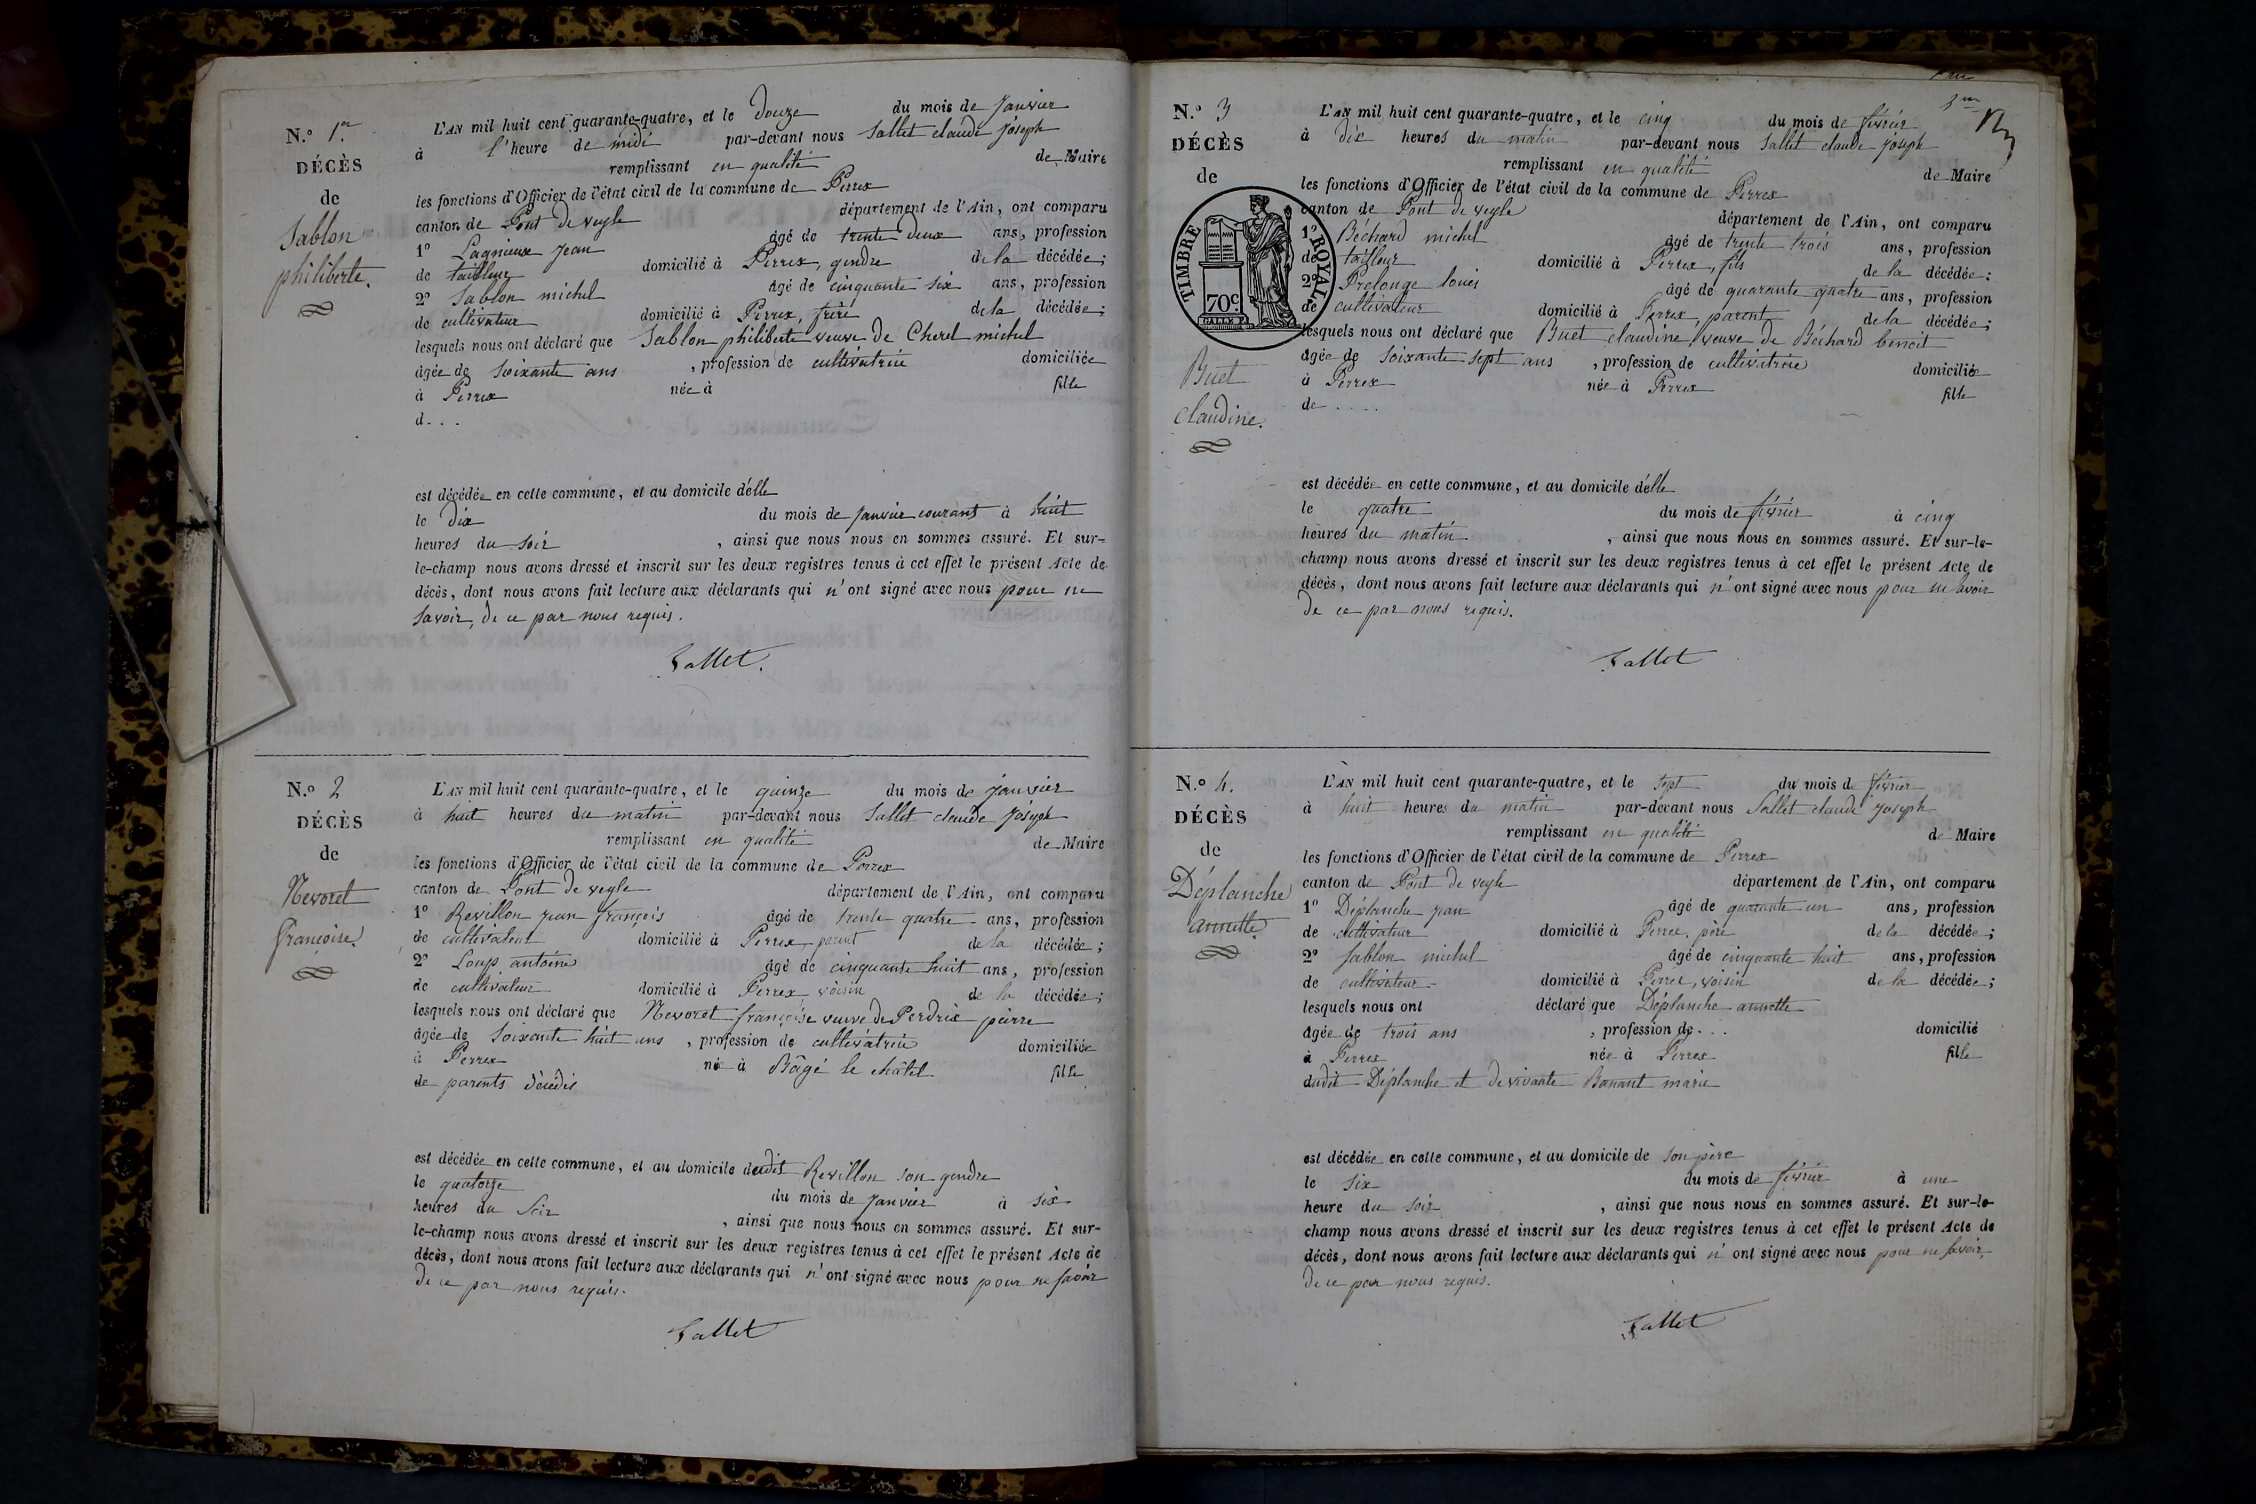 N.º 1.er
DÉCÈS
de
Sablon
philiberte.
L'AN mil huit cent quarante-quatre, et le douze du mois de janvier
à l'heure de midi par-devant nous Sallet claude joseph
remplissant en qualité de Maire
les fonctions d'Officier de l'état civil de la commune de Perrex
canton de Pont de veyle département de l'Ain, ont comparu
1º Lagnieux jean âgé de trente deux ans, profession
de tailleur domicilié à Perrex, gendre de la décédée;
2º Sablon michel âgé de cinquante six ans, profession
de cultivateur domicilié à Perrex, frère de la décédée;
lesquels nous ont déclaré que Sablon philiberte veuve de Cherel michel
âgée de Soixante ans , profession de cultivatrice domiciliée
à Perrex née à fille
d...
est décédée en cette commune, et au domicile d'elle
le dix du mois de janvier courant à huit
heures du soir , ainsi que nous nous en sommes assuré. Et sur-
le-champ nous avons dressé et inscrit sur les deux registres tenus à cet effet le présent Acte de
décès, dont nous avons fait lecture aux déclarants qui n'ont signé avec nous pour ne
savoir, de ce par nous requis.
Sallet.
N.º 2
DÉCÈS
de
Nevoret
françoise.
L'AN mil huit cent quarante-quatre, et le quinze du mois de janvier
à huit heures du matin par-devant nous Sallet claude joseph
remplissant en qualité de Maire
les fonctions d'Officier de l'état civil de la commune de Perrex
canton de Pont de veyle département de l'Ain, ont comparu
1º Revillon jean françois âgé de trente quatre ans, profession
de cultivateur domicilié à Perrex, parent de la décédée;
2º Loup antoine âgé de cinquante huit ans, profession
de cultivateur domicilié à Perrex, voisin de la décédée;
lesquels nous ont déclaré que Nevoret françoise veuve de Perdrix pierre
âgée de Soixante huit ans , profession de cultivatrice domiciliée
à Perrex née à Bâgé le châtel fille
de parents décédés
est décédée en cette commune, et au domicile dudit Revillon son gendre
le quatorze du mois de janvier à six
heures du Soir , ainsi que nous nous en sommes assuré. Et sur-
le-champ nous avons dressé et inscrit sur les deux registres tenus à cet effet le présent Acte de
décès, dont nous avons fait lecture aux déclarants qui n'ont signé avec nous pour ne savoir
de ce par nous requis.
Sallet
N.º 3
DÉCÈS
de
TIMBRE ROYAL
70c.
Buet
claudine.
L'AN mil huit cent quarante-quatre, et le cinq du mois de février
à dix heures du matin par-devant nous Sallet claude joseph
remplissant en qualité de Maire
les fonctions d'Officier de l'état civil de la commune de Perrex
canton de Pont de veyle département de l'Ain, ont comparu
1º Béchard michel âgé de trente trois ans, profession
de tailleur domicilié à Perrex, fils de la décédée;
2º Prelonge louis âgé de quarante quatre ans, profession
de cultivateur domicilié à Perrex, parent de la décédée;
lesquels nous ont déclaré que Buet claudine, veuve de Béchard benoit
âgée de Soixante sept ans , profession de cultivatrice domiciliée
à Perrex née à Perrex fille
de ....
est décédée en cette commune, et au domicile d'elle
le quatre du mois de février à cinq
heures du matin , ainsi que nous nous en sommes assuré. Et sur-le-
champ nous avons dressé et inscrit sur les deux registres tenus à cet effet le présent Acte de
décès, dont nous avons fait lecture aux déclarants qui n'ont signé avec nous pour ne savoir
de ce par nous requis.
Sallet
N.º 4.
DÉCÈS
de
Déplanche
annette.
L'AN mil huit cent quarante-quatre, et le sept du mois de février
à huit heures du matin par-devant nous Sallet claude joseph
remplissant en qualité de Maire
les fonctions d'Officier de l'état civil de la commune de Perrex
canton de Pont de veyle département de l'Ain, ont comparu
1º Déplanche jean âgé de quarante un ans, profession
de cultivateur domicilié à Perrex, père de la décédée;
2º Sablon michel âgé de cinquante huit ans, profession
de cultivateur domicilié à Perrex, voisin de la décédée;
lesquels nous ont déclaré que Déplanche annette
âgée de trois ans , profession de ... domicilié
à Perrex née à Perrex fille
dudit Déplanche et de vivante Bonant marie
est décédée en cette commune, et au domicile de son père
le six du mois de février à une
heure du soir , ainsi que nous nous en sommes assuré. Et sur-le-
champ nous avons dressé et inscrit sur les deux registres tenus à cet effet le présent Acte de
décès, dont nous avons fait lecture aux déclarants qui n'ont signé avec nous pour ne savoir,
de ce par nous requis.
Sallet